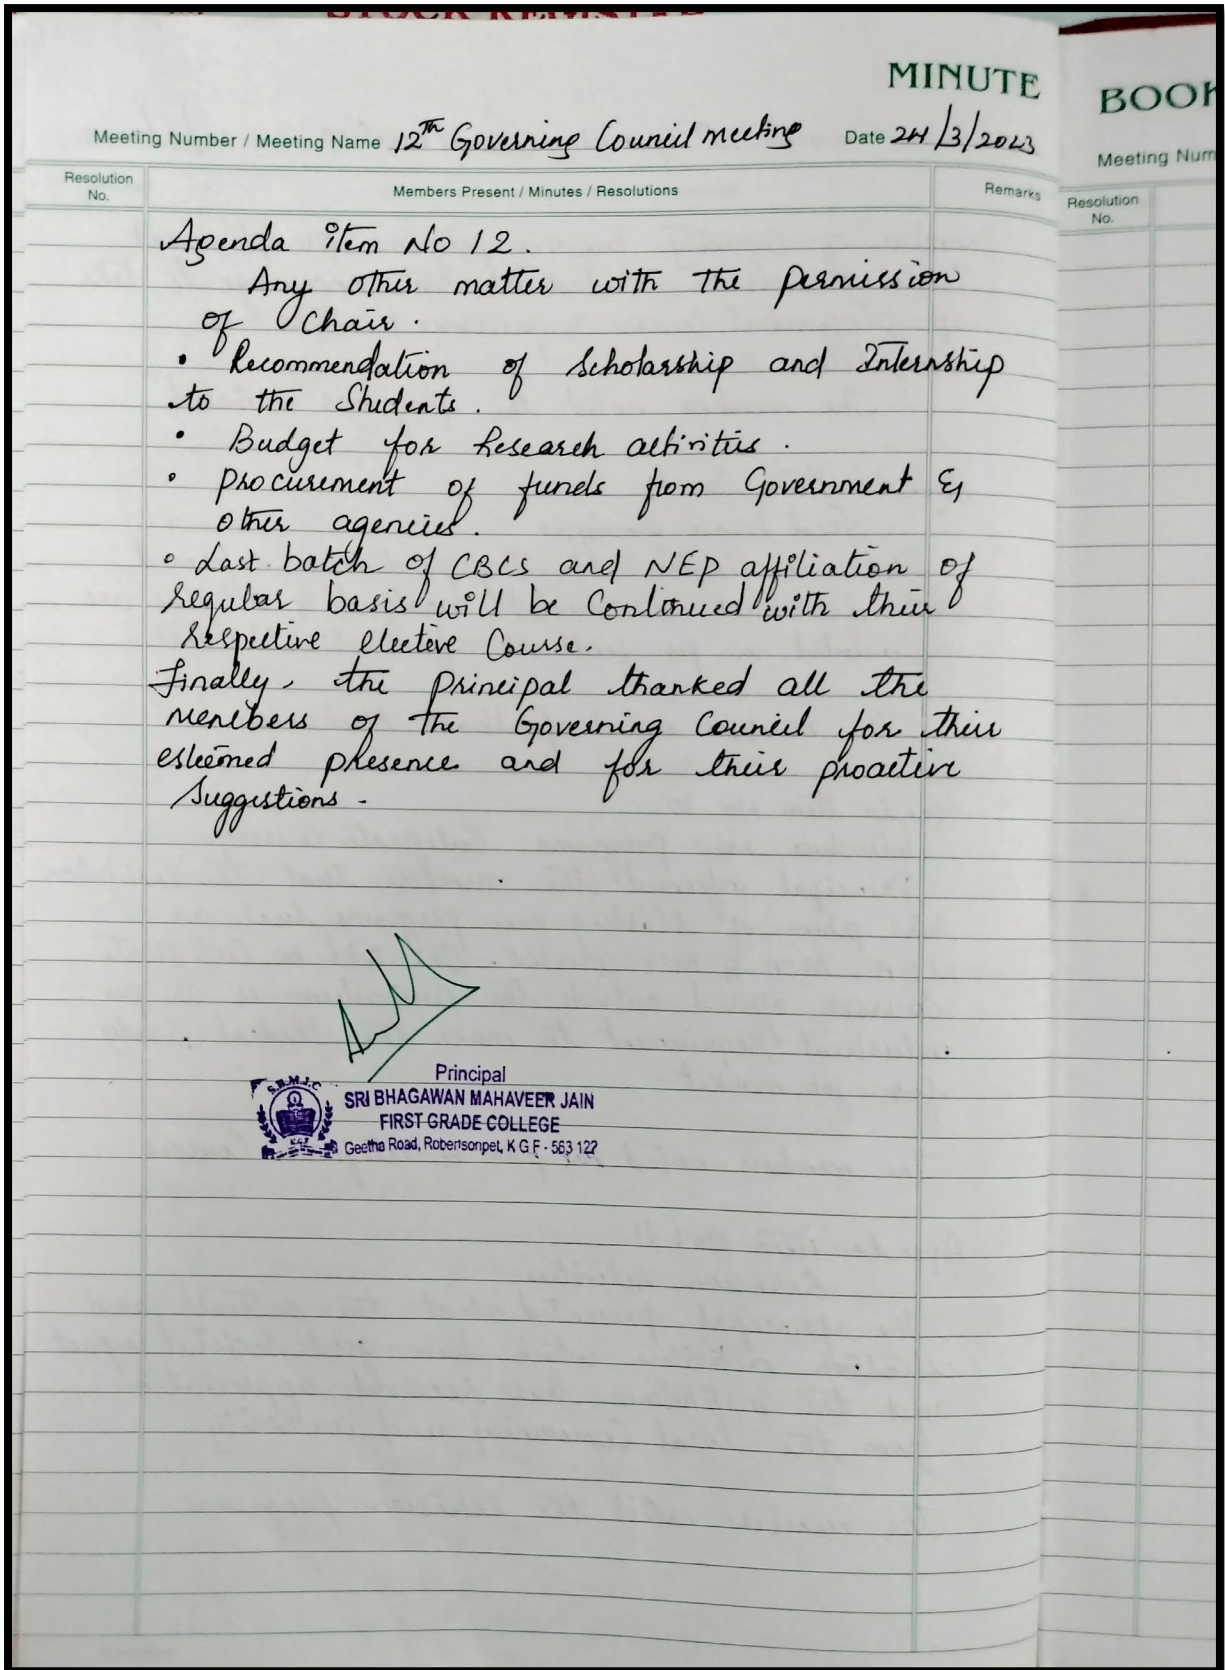 STOCK REGISTE
MINUTE
Meeting Number / Meeting Name 12Th Governing Council meeting Date 24/3/2023
Resolution No.
Members Present / Minutes / Resolutions
Remarks
Agenda item No 12.
Any other matter with the permission
of Chair.
• Recommendation of Scholarship and Internship
to the Students.
• Budget for Research activities.
• procurement of funds from Government &
other agencies.
• Last batch of CBCS and NEP affiliation of
regular basis will be Continued with their
respective elective Course.
Finally, the principal thanked all the
members of the Governing Council for their
esteemed presence and for their proactive
Suggestions.
Principal
S.B.M.J.C
SRI BHAGAWAN MAHAVEER JAIN
FIRST GRADE COLLEGE
K.G.F
Geetha Road, Robertsonpet, K G F - 563 122
BOOK
Meeting Num
Resolution
No.